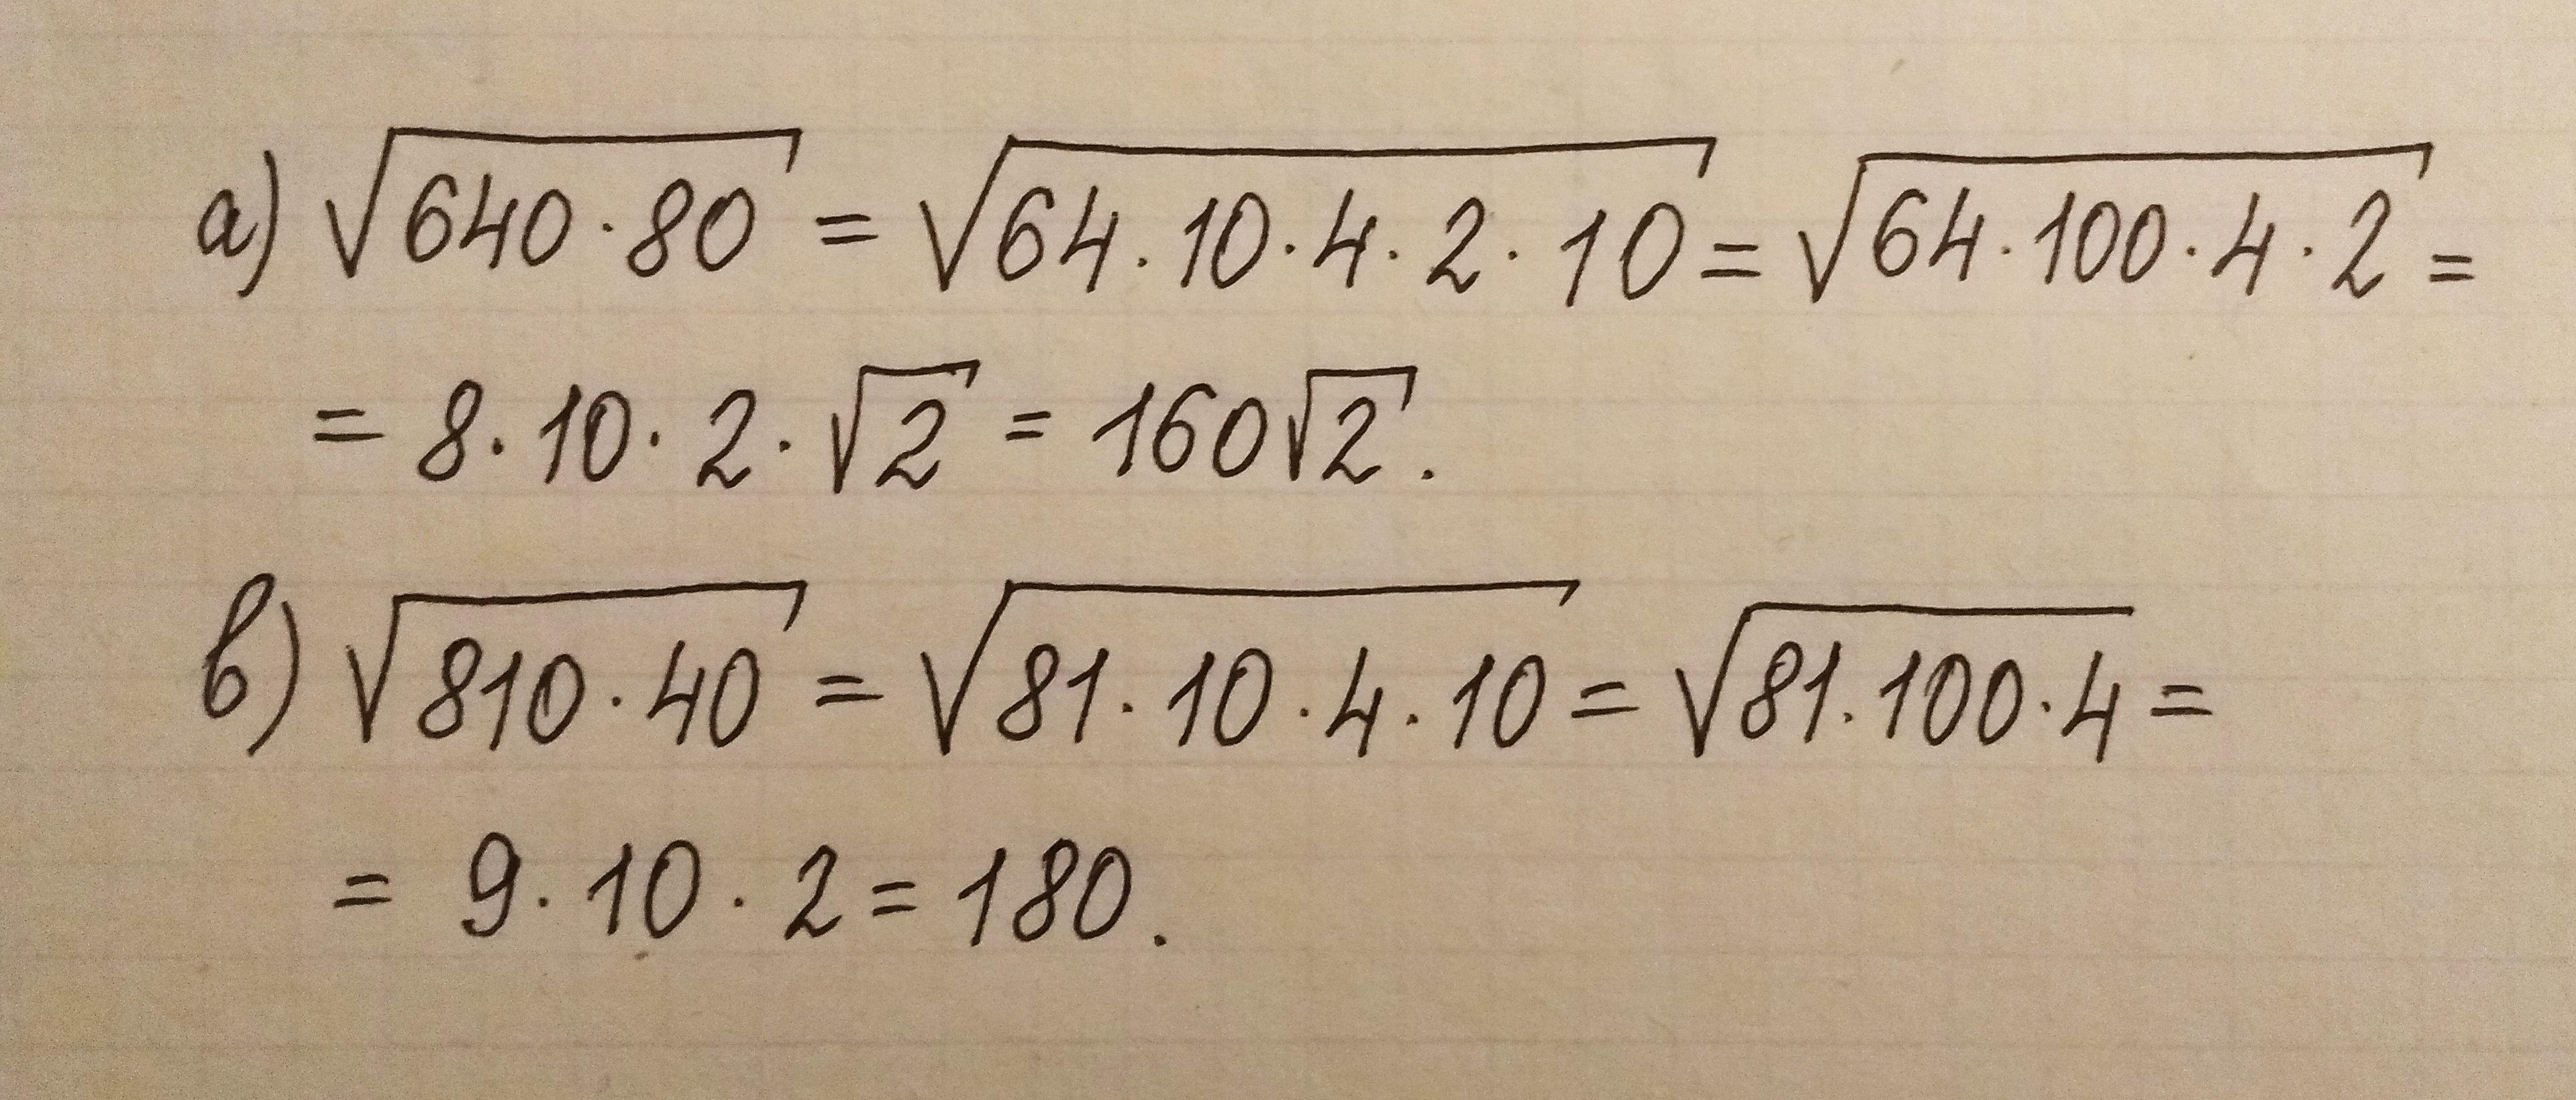 а) √640·80 = √64·10·4·2·10 = √64·100·4·2 =
= 8·10·2·√2 = 160√2.
в) √810·40 = √81·10·4·10 = √81·100·4 =
= 9·10·2 = 180.